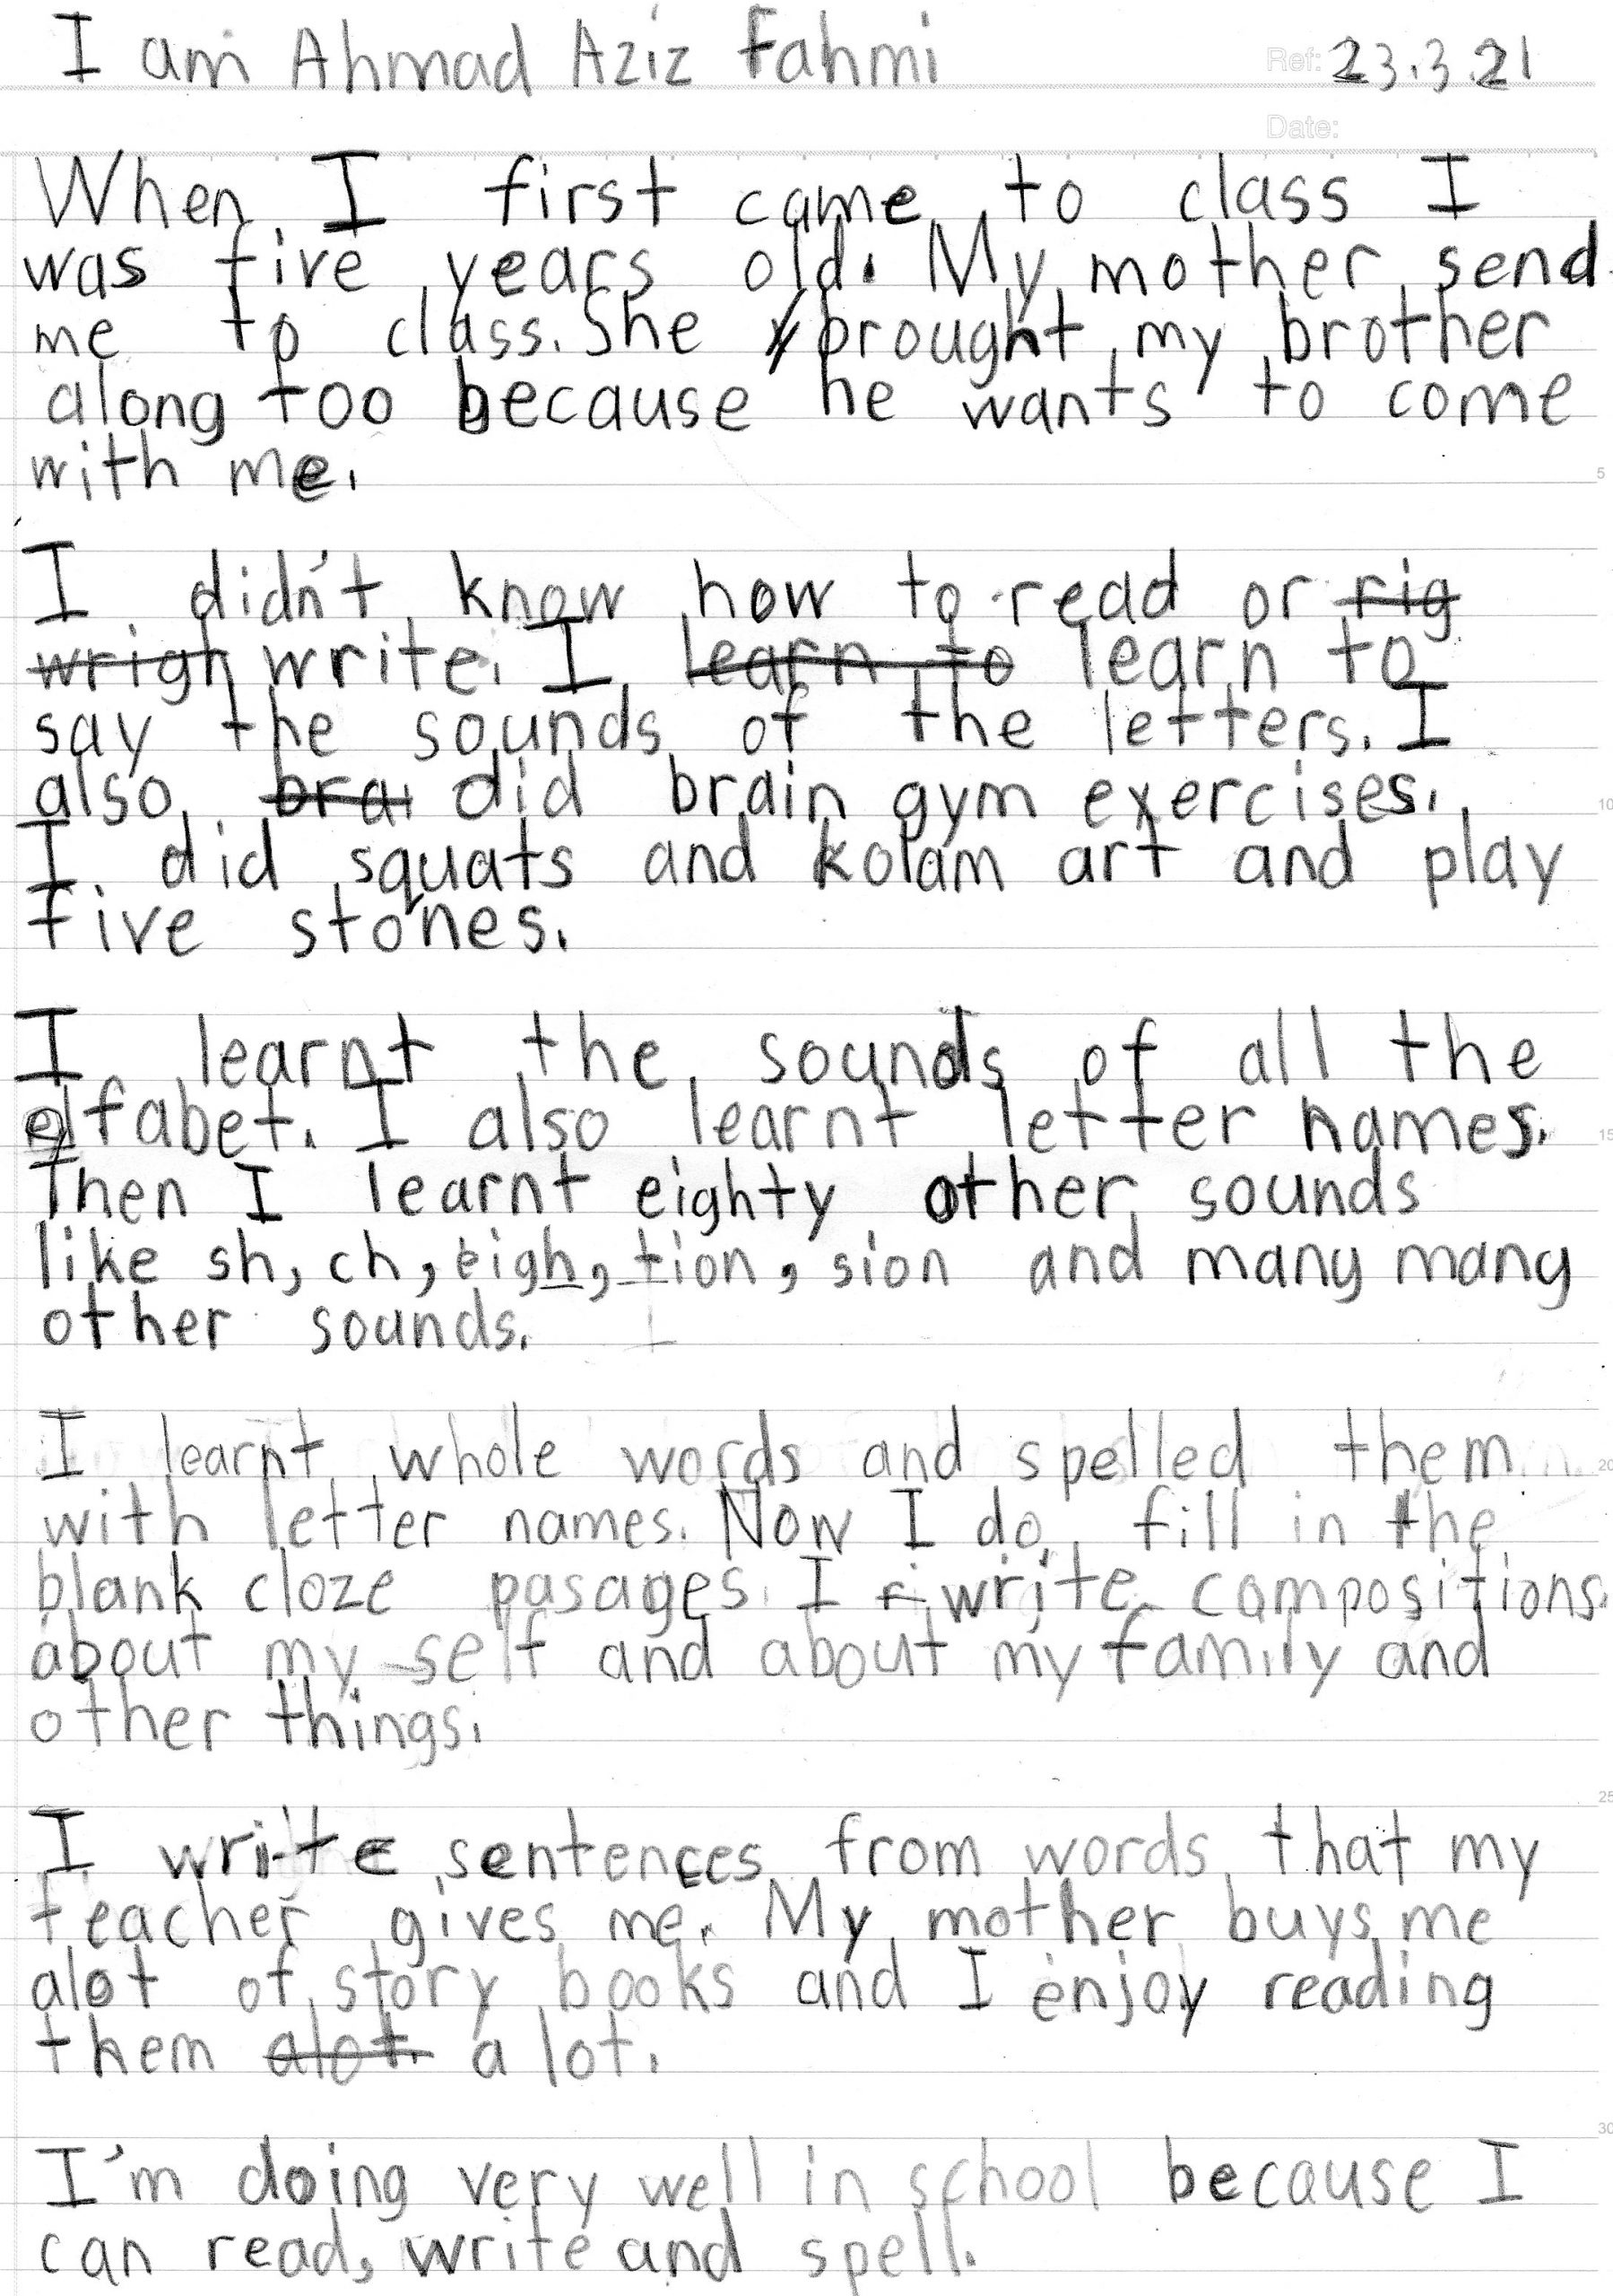 I am Ahmad Aziz Fahmi
Ref: 23.3.21
Date:
When I first came to class I
was five years old. My mother send
me to class. She brought my brother
along too because he wants to come
with me.
5
I didn't know how to read or rig
wrigh write. I learn to learn to
say the sounds of the letters. I
also brai did brain gym exercises.
10
I did squats and kolam art and play
five stones.
I learnt the sounds of all the
elfabet. I also learnt letter names.
15
Then I learnt eighty other sounds
like sh, ch, eigh, tion, sion and many many
other sounds.
I learnt whole words and spelled them
20
with letter names. Now I do fill in the
blank cloze pasages. I r write compositions
about my self and about my family and
other things.
25
I write sentences from words that my
teacher gives me. My mother buys me
alot of story books and I enjoy reading
them alot. a lot.
30
I'm doing very well in school because I
can read, write and spell.